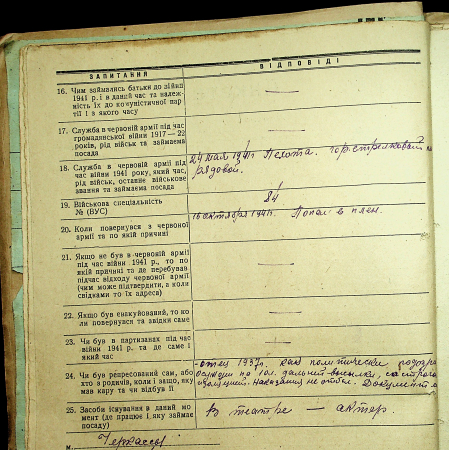 ЗАПИТАННЯ
ВІДПОВІДІ
16. Чим займались батьки до війни
1941 р. і в даний час та належ-
ність їх до комуністичної пар-
тії і з якого часу
—
17. Служба в червоній армії під час
громадянської війни 1917—22
років, рід військ та займаема
посада
—
18. Служба в червоній армії під
час війни 1941 року, який час,
рід військ, останнє військове
звання та займаема посада
24 мая 1941г Пехота. горстрелковый
рядовой.
19. Військова спеціальність
№ (ВУС)
84
20. Коли повернувся з червоної
армії та по якій причині
16 октября 1941г. Попал в плен.
21. Якщо не був в червоній армії
під час війни 1941 р., то по
якій причині та де перебував
підчас відходу червоної армії
(чим може підтвердити, а коли
свідками то їх адреса)
—
22. Якщо був енакуйований, то ко-
ли повернувся та звідки саме
—
23. Чи був в партизанах під час
війни 1941 р. та де саме і
який час
24. Чи був репресований сам, або
хто з родичів, коли і защо, яку
мав кару та чи відбув її
отец 1937г. как политически
осужден по 10л. дальней высылки, со строгой
изоляцией. Наказания не отбыл. Документ
25. Засоби існування в даний мо-
мент (де працює і яку займає
посаду)
В театре — актер.
м. Черкассы